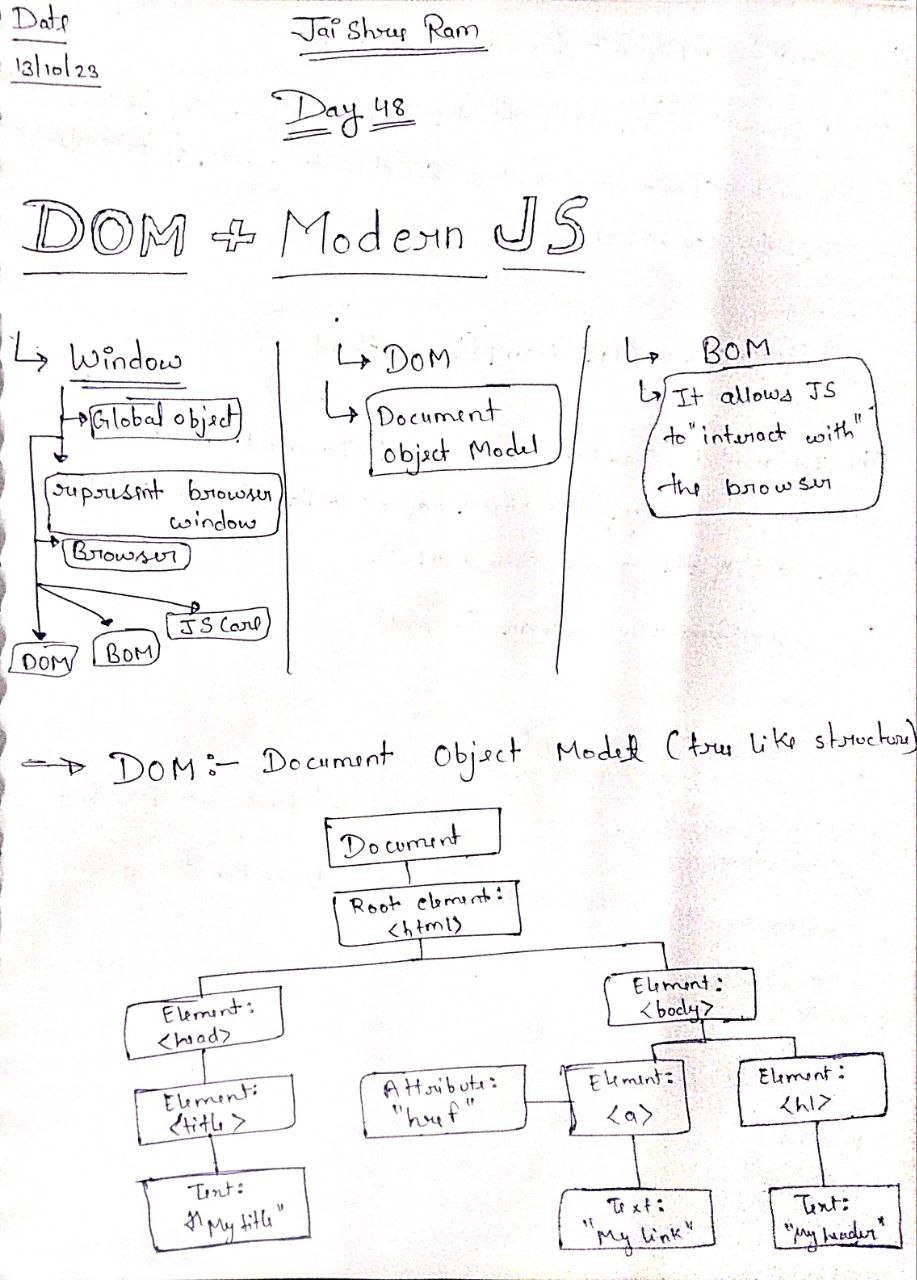 Date
13/10/23
Jai Shree Ram
Day 48
DOM + Modern JS
Window
Global object
represent browser
window
Browser
DOM
BOM
JS Core
DOM
Document
Object Model
BOM
It allows JS
to "interact with"
the browser
DOM :- Document Object Model (tree like structure)
Document
Root element:
<html>
Element:
<head>
Element:
<body>
Element:
<title>
Attribute:
"href"
Element:
<a>
Element:
<h1>
Text:
"My title"
Text:
"My link"
Text:
"My header"